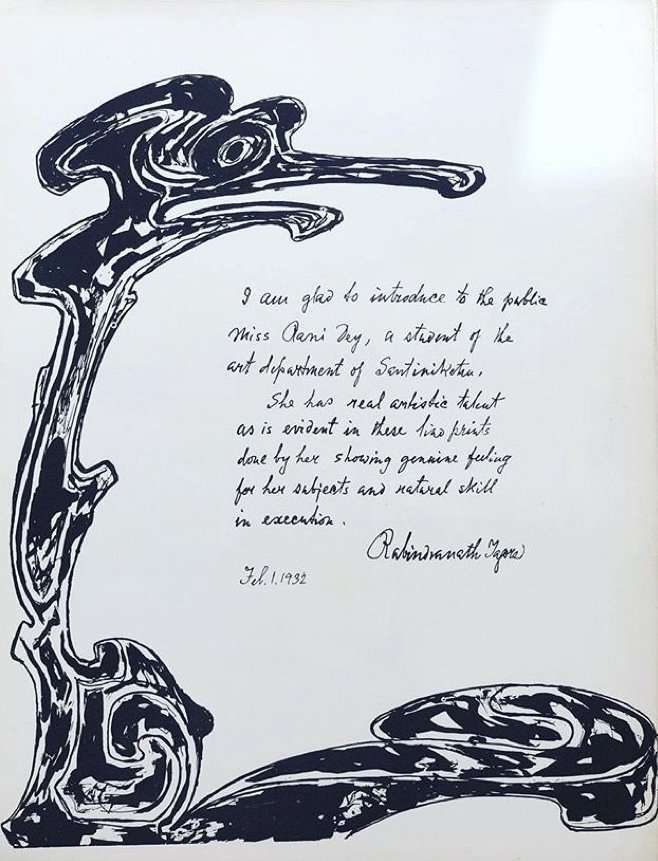 I am glad to introduce to the public
Miss Rani Dey, a student of the
art department of Santiniketan.
She has real artistic talent
as is evident in these lino prints
done by her showing genuine feeling
for her subjects and natural skill
in execution.
Rabindranath Tagore
Feb. 1. 1932